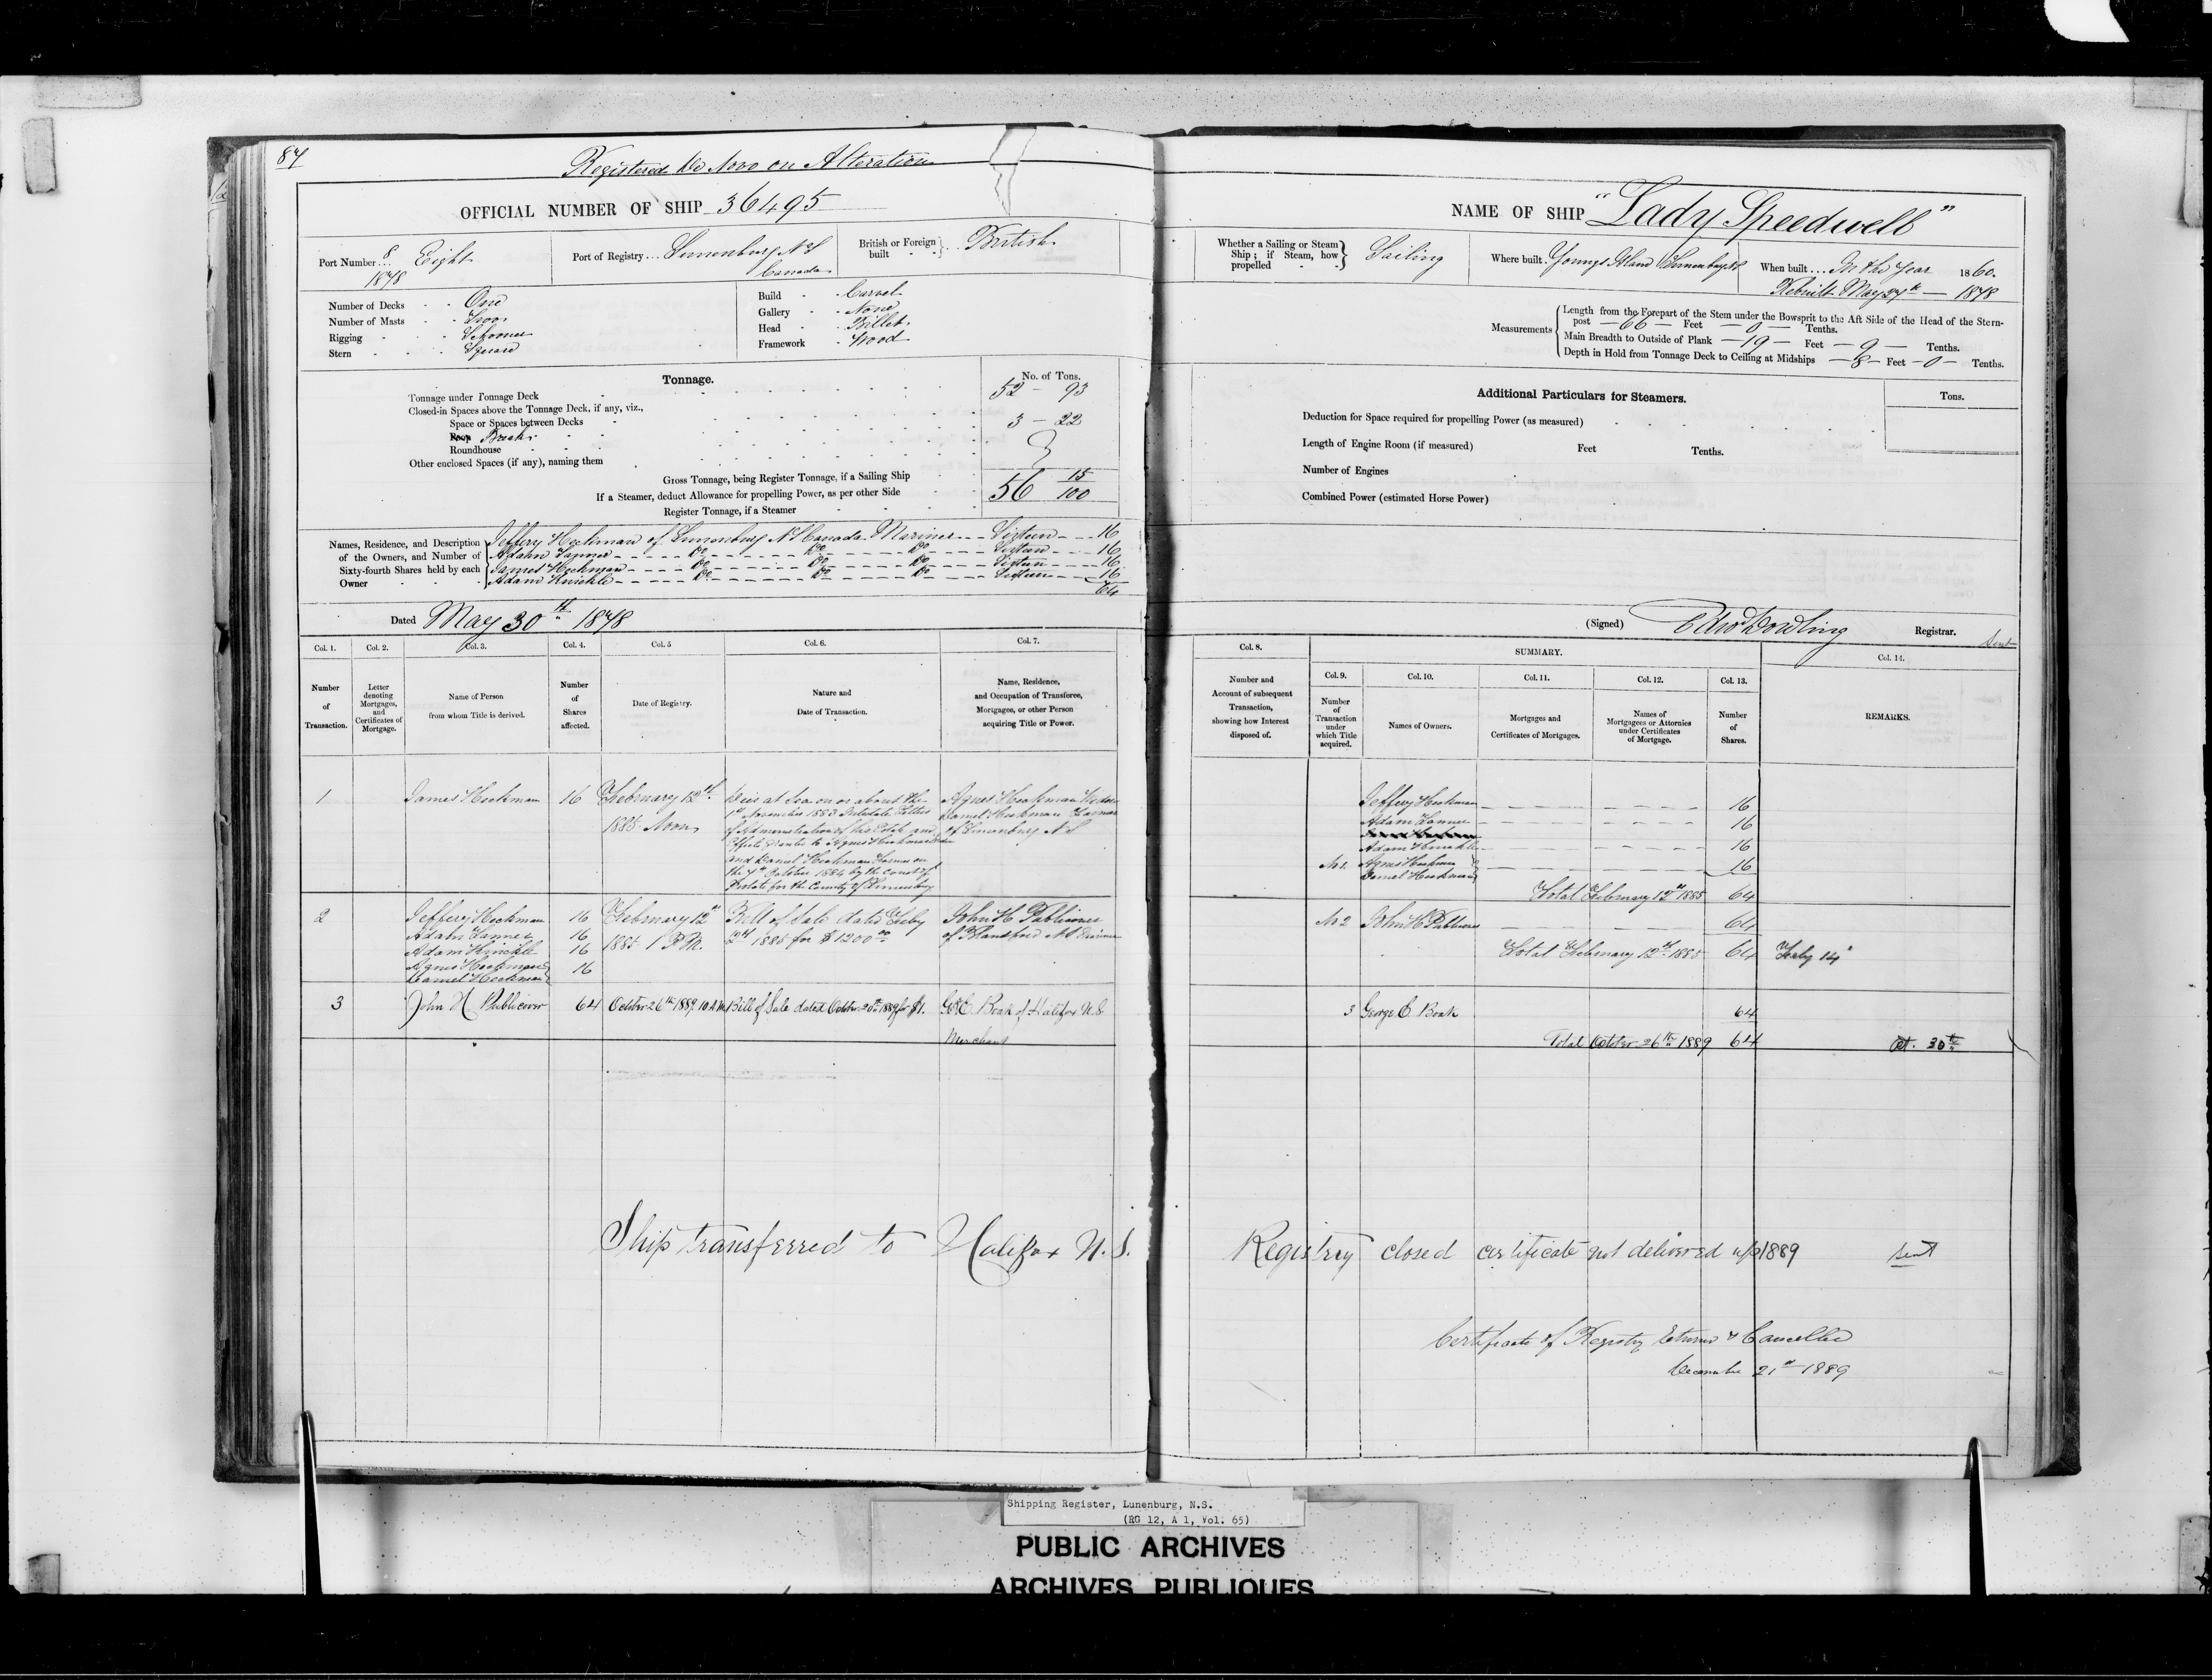 87
Registered De Novo on Alteration
OFFICIAL NUMBER OF SHIP 36495
Port Number... 8 Eight
1878
Port of Registry... Lunenburg N S
Canada
British or Foreign built British
Number of Decks One
Number of Masts Two
Rigging Schooner
Stern Square
Build Carvel
Gallery None
Head Billet
Framework Wood
Tonnage.
No. of Tons.
Tonnage under Tonnage Deck 52 - 93
Closed-in Spaces above the Tonnage Deck, if any, viz.,
Space or Spaces between Decks 3 - 22
Poop Break
Roundhouse
Other enclosed Spaces (if any), naming them
Gross Tonnage, being Register Tonnage, if a Sailing Ship 56 15/100
If a Steamer, deduct Allowance for propelling Power, as per other Side
Register Tonnage, if a Steamer
Names, Residence, and Description of the Owners, and Number of Sixty-fourth Shares held by each Owner
Jeffery Heckman of Lunenburg N S Canada Mariner - - - Sixteen - - 16
Adahn Tanner - - - Do - - - Do - - - Do - - - Sixteen - - - 16
James Heckman - - - Do - - - Do - - - Do - - - Sixteen - - - 16
Adam Knickle - - - Do - - - Do - - - Do - - - Sixteen - - - 16
64
Dated May 30th 1878
Col. 1. Col. 2. Col. 3. Col. 4. Col. 5 Col. 6. Col. 7.
Number of Transaction.
Letter denoting Mortgages, and Certificates of Mortgage.
Name of Person from whom Title is derived.
Number of Shares affected.
Date of Registry.
Nature and Date of Transaction.
Name, Residence, and Occupation of Transferee, Mortgagee, or other Person acquiring Title or Power.
1 James Heckman 16 February 12th
1885 Noon
Died at Sea on or about the
1st November 1883 Intestate Letters
of Administration of his Estate and
Effects granted to Agnes Heckman Widow
and Daniel Heckman Farmer on
the 7th October 1884 by the Court of
Probate for the County of Lunenburg
Agnes Heckman Widow
Daniel Heckman Farmer
of Lunenburg N S
2 Jeffery Heckman 16
Adahn Tanner 16
Adam Knickle 16
Agnes Heckman
Daniel Heckman 16
February 12th
1885 1 P.M.
Bill of Sale dated Feby
12th 1885 for $1200.00
John H Publicover
of Blandford N S
3 John H Publicover 64 October 26th 1889 10 A.M. Bill of Sale dated October 20th 1889 for $1. Geo. E. Boak of Halifax N.S
Merchant
Ship transferred to Halifax N.S.
NAME OF SHIP "Lady Speedwell"
Whether a Sailing or Steam Ship; if Steam, how propelled Sailing
Where built. Youngs Island Lunenburg N S
When built... In the Year 1860.
Rebuilt May 27th - 1878
Measurements
Length from the Forepart of the Stem under the Bowsprit to the Aft Side of the Head of the Stern-
post - 66 - Feet - 0 - Tenths.
Main Breadth to Outside of Plank - 19 - Feet - 9 - Tenths.
Depth in Hold from Tonnage Deck to Ceiling at Midships - 8 - Feet - 0 - Tenths.
Additional Particulars for Steamers.
Tons.
Deduction for Space required for propelling Power (as measured)
Length of Engine Room (if measured) Feet Tenths.
Number of Engines
Combined Power (estimated Horse Power)
(Signed) Edw Dowling Registrar.
Sent
Col. 8. SUMMARY. Col. 14.
Col. 9. Col. 10. Col. 11. Col. 12. Col. 13.
Number and Account of subsequent Transaction, showing how Interest disposed of.
Number of Transaction under which Title acquired.
Names of Owners.
Mortgages and Certificates of Mortgages.
Names of Mortgagees or Attornies under Certificates of Mortgage.
Number of Shares.
REMARKS.
Jeffery Heckman 16
Adam Tanner 16
Adam Knickle 16
No 1. Agnes Heckman
Daniel Heckman 16
Total February 12th 1885 64
No 2 John H Publicover 64
Total February 12th 1885 64 Feby 14
3 George E Boak 64
Total October 26th 1889 64 Oct. 30th
Registry closed certificate not delivered up 1889 sent
Certificate of Registry returned & Cancelled
December 21st 1889
Shipping Register, Lunenburg, N.S.
(RG 12, A 1, Vol. 65)
PUBLIC ARCHIVES
ARCHIVES PUBLIQUES